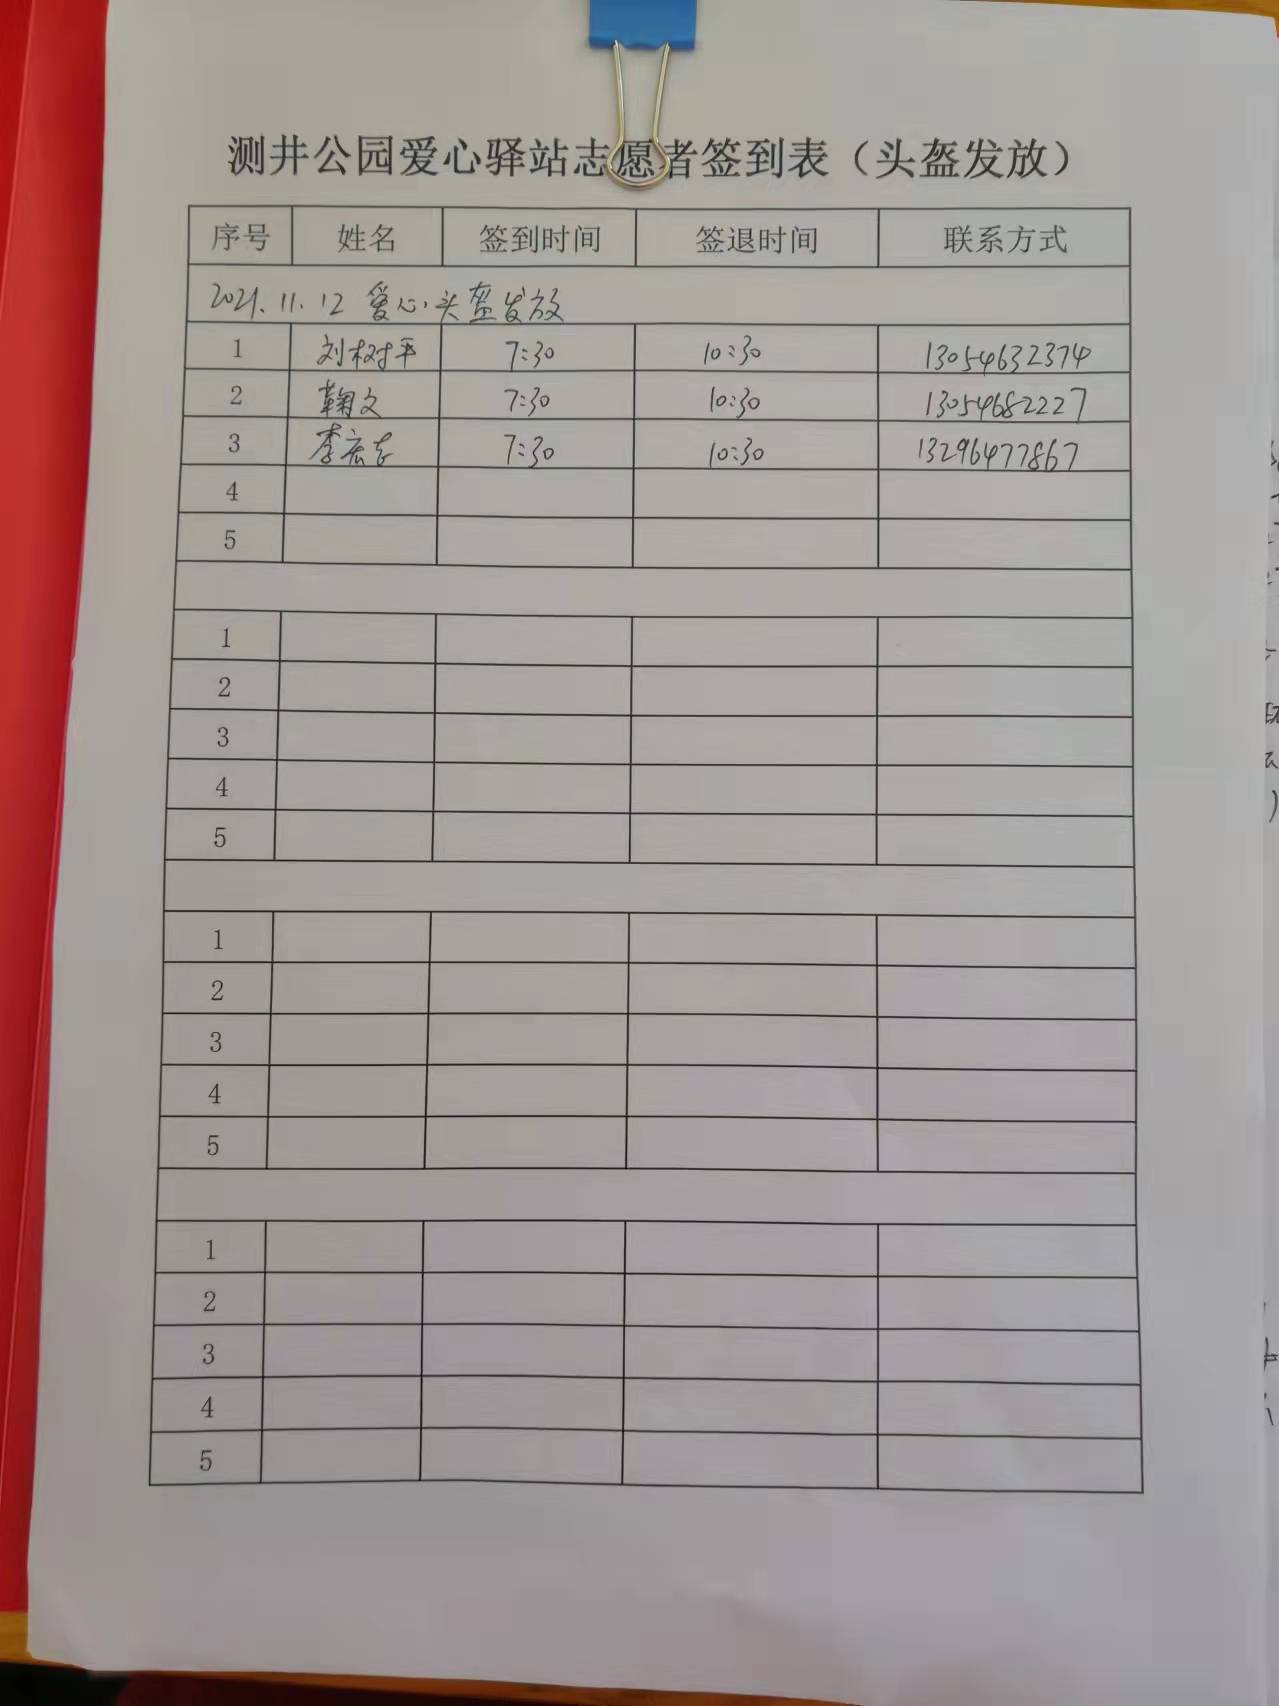 测井公园爱心驿站志愿者签到表（头盔发放）
序号 姓名 签到时间 签退时间 联系方式
2021.11.12 爱心头盔发放
1 刘树平 7:30 10:30 13054632374
2 鞠文 7:30 10:30 13054682227
3 李宏志 7:30 10:30 13296477867
4
5
1
2
3
4
5
1
2
3
4
5
1
2
3
4
5